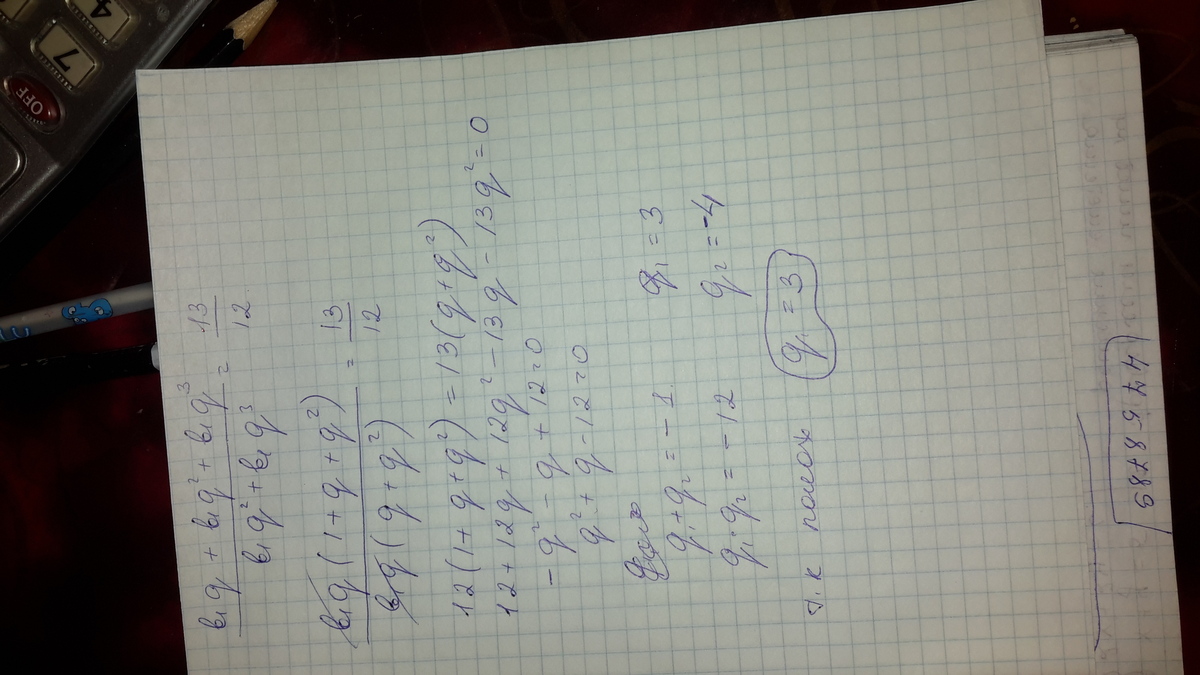 b₁q + b₁q² + b₁q³ / b₁q² + b₁q³ = 13/12
b₁q (1 + q + q²) / b₁q (q + q²) = 13/12
12(1 + q + q²) = 13(q + q²)
12 + 12q + 12q² - 13q - 13q² = 0
- q² - q + 12 = 0
q² + q - 12 = 0
q₁ + q₂ = - 1
q₁ · q₂ = - 12
q₁ = 3
q₂ = -4
т.к
q₁ = 3
4758789
7
4
OFF